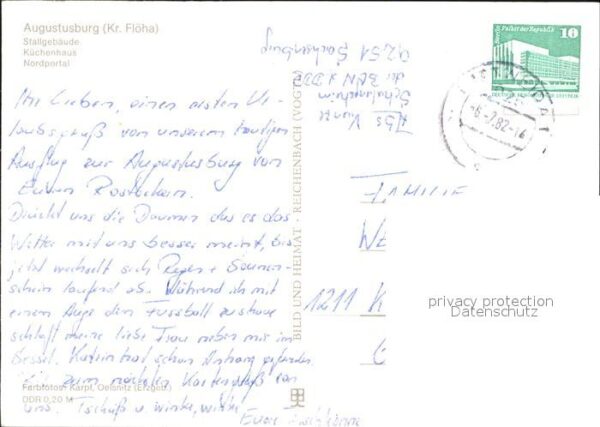 Augustusburg (Kr. Flöha)
Stallgebäude
Küchenhaus
Nordportal
Ihr Lieben, einen ersten Ur-
laubsgruß von unserem heutigen
Ausflug zur Augustusburg von
Euren Rostockern.
Drückt uns die Daumen das es das
Wetter mit uns besser meint, bis
jetzt wechselt sich Regen + Sonnen-
schein laufend ab. Während ich mit
einem Auge den Fussball zuschaue
schläft meine liebe Frau neben mir im
Sessel. Katrin hat schon Anhang gefunden.
Bis zum nächsten Kartengruß von
uns. Tschüß u winke, winke
Eure
Farbfotos: Karpf, Oelsnitz (Erzgeb.)
DDR 0,20 M
BILD UND HEIMAT · REICHENBACH (VOGTL)
Abs
Schulungsheim
der
9251 Sachsenburg
Palast der Republik
10
-6.-7.82-14
FAMILIE
WE
1211 K
privacy protection
Datenschutz